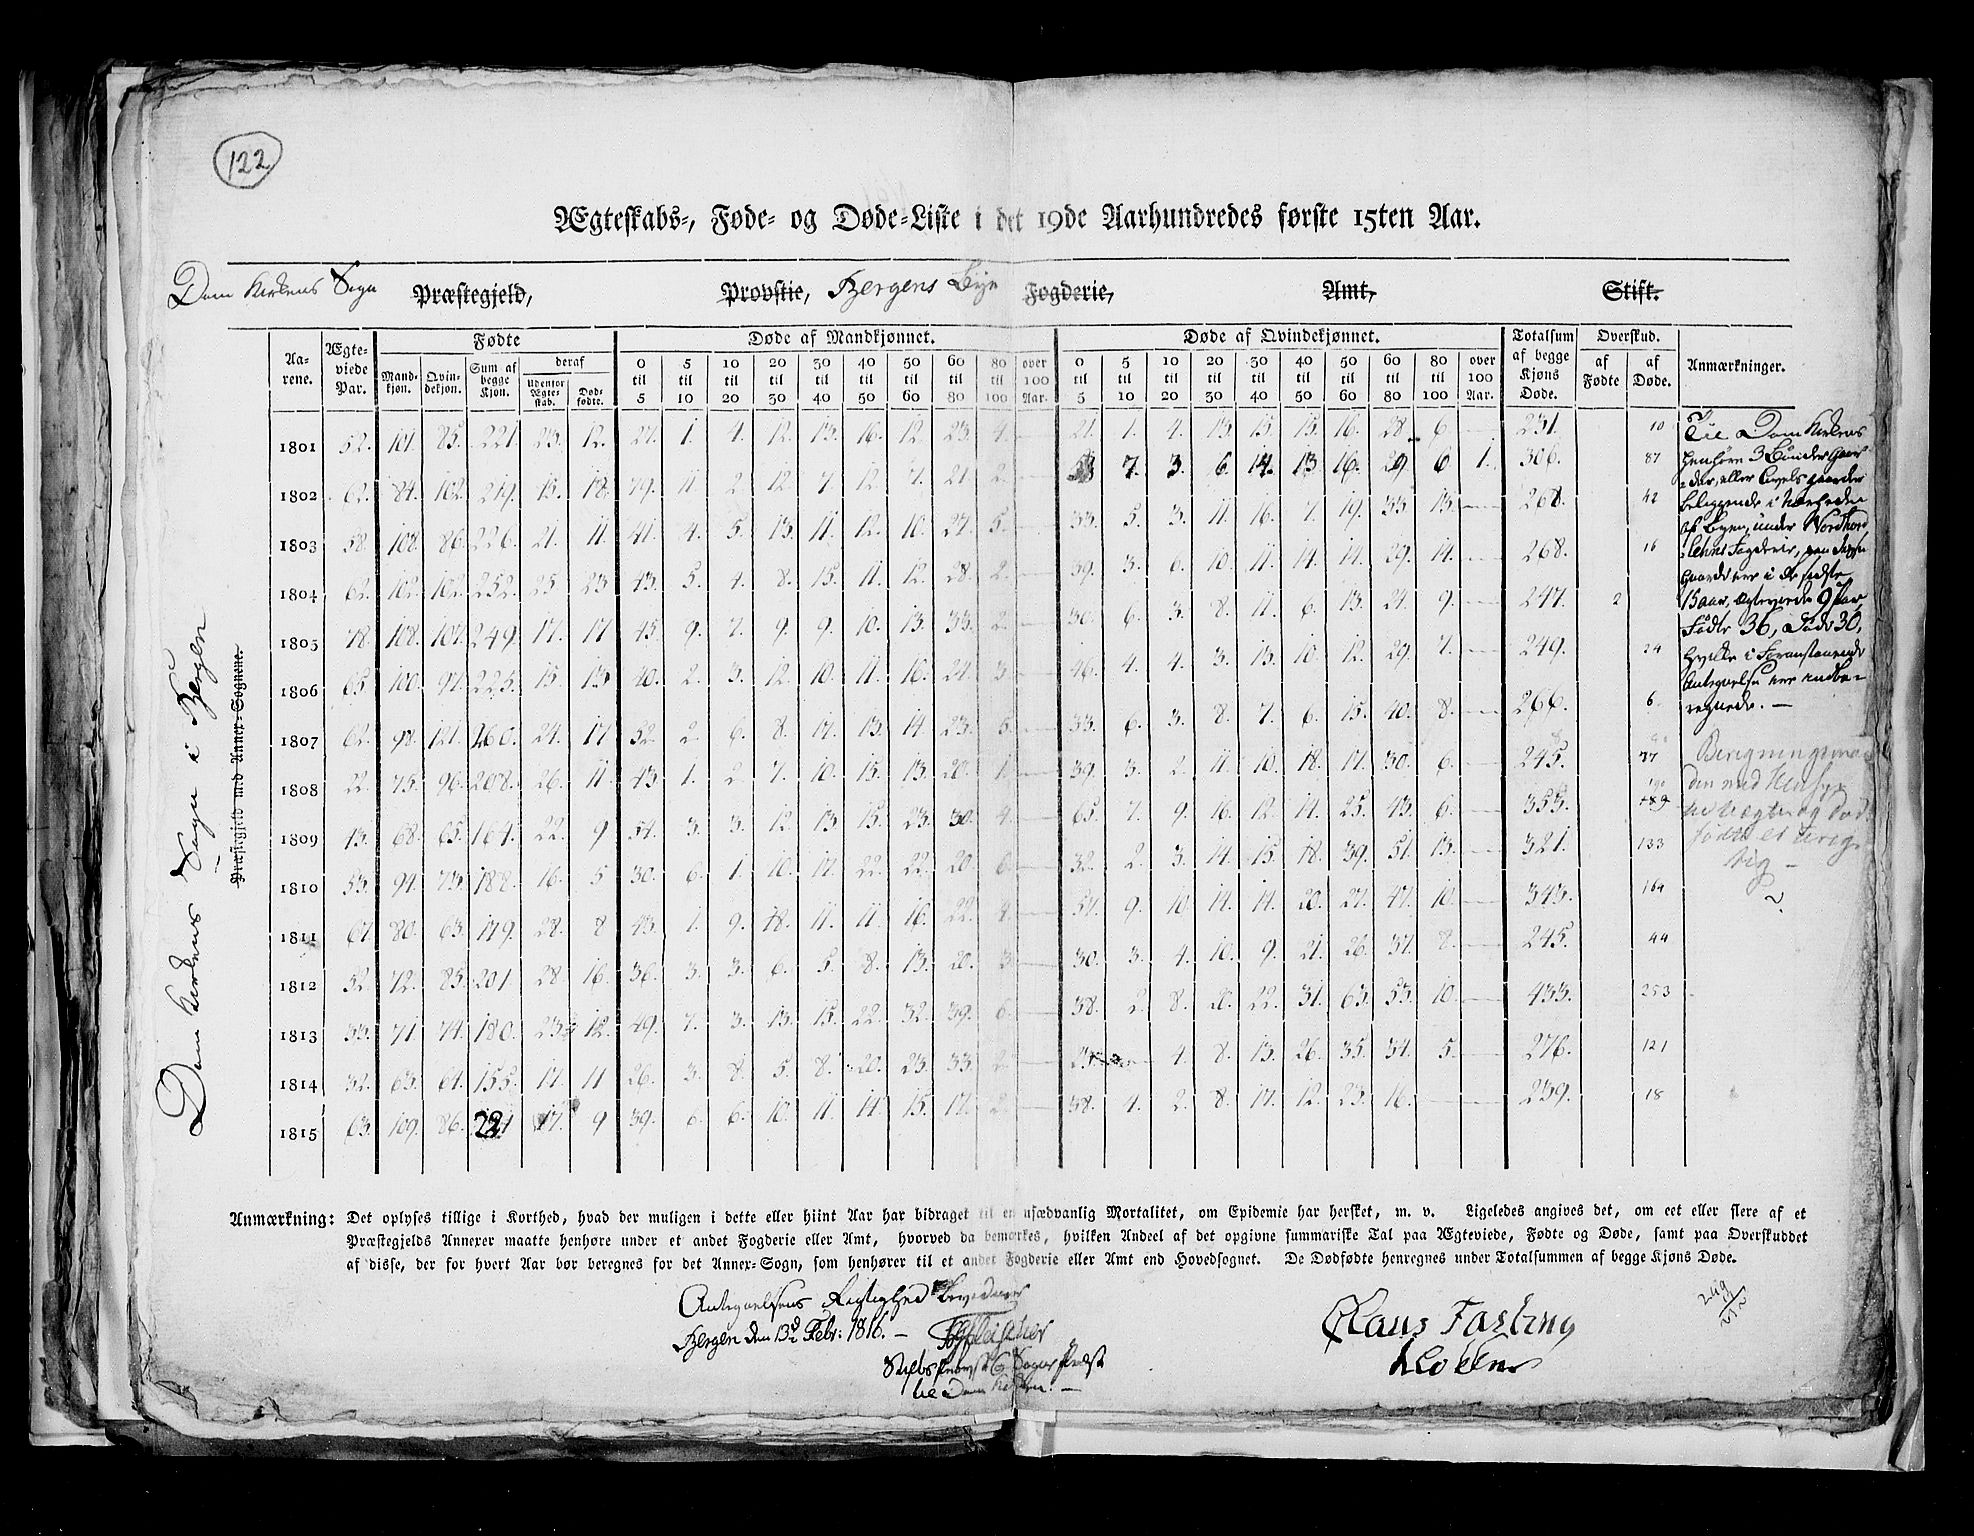 122
Ægteskabs-, Føde- og Døde-Liste i det 19de Aarhundredes første 15ten Aar.
Dom Kirkens Sogn Præstegjeld, Provstie, Bergens Bye Fogderie, Amt, Stift.
Dom Kirkens Sogn i Bergen
Præstegjeld med Annex-Sognene.
Aarene. Ægteviede Par. Fødte Døde af Mandkjønnet. Døde af Qvindekjønnet. Totalsum af begge Kjøns Døde. Overskud. Anmærkninger.
Mandkjøn. Qvindekjøn. Sum af begge Kjøn. deraf Udenfor Ægteskab. Dødfødte. af Fødte af Døde.
0 til 5 5 til 10 10 til 20 20 til 30 30 til 40 40 til 50 50 til 60 60 til 80 80 til 100 over 100 Aar.
0 til 5 5 til 10 10 til 20 20 til 30 30 til 40 40 til 50 50 til 60 60 til 80 80 til 100 over 100 Aar.
1801 52. 101. 85. 221. 23. 12. 27. 1. 4. 12. 13. 16. 12. 23. 4. 21. 1. 4. 13. 15. 15. 16. 28. 6. 231. 10
1802 62. 84. 102. 219. 15. 18. 79. 11. 2. 12. 7. 12. 7. 21. 2. 7. 3. 6. 14. 13. 16. 29. 6 1. 306. 87
1803 58. 108. 86. 226. 21. 11. 41. 4. 5. 13. 11. 12. 10. 27. 5. 33. 5. 3. 11. 16. 7. 19. 33. 13. 268. 42
1804 62. 102. 102. 252. 25 23 43. 5. 4. 8. 15. 11. 12. 28. 2. 39. 3. 6. 10. 11. 14. 14. 29. 14. 268. 16
1805 78. 108. 107. 249. 17. 17 45. 9. 7. 9. 9. 10. 13. 33. 2. 30. 6. 3. 8. 11. 6. 13. 24. 9. 247. 2
1806 65. 100. 97. 225. 15. 13 40. 2. 3. 12. 10. 11. 16. 24. 3. 46. 4. 4. 3. 13. 10. 12. 29. 7. 249. 24
1807 62. 98. 121. 260. 24. 17 52. 2. 6. 8. 17. 13. 14. 23. 5. 33. 6. 3. 8. 7. 6. 15. 40. 8. 266. 6.
1808 22. 75. 96. 208. 26. 11. 43. 1. 2. 7. 10. 15. 13. 20. 1. 39. 3. 2. 11. 10. 18. 17. 30. 6. 245. 37
1809 43. 68. 65. 164. 22. 9 54. 3. 3. 12. 13. 15. 23. 30. 4. 65. 7. 9. 16. 12. 14. 25. 43. 6. 353. 189
1810 53. 94. 73. 188. 16. 5 30. 6. 1. 10. 17. 22. 22. 20. 6. 32. 2. 3. 14. 15. 18. 39. 51. 13. 321. 133
1811 67. 80. 63. 179. 28. 8 43. 1. 9. 18. 11. 11. 16. 22. 4. 57. 9. 10. 14. 14. 20. 27. 47. 10. 343. 164
1812 52. 72. 85. 201 28 16. 36. 3. 3. 6. 5. 8. 13. 20. 3. 30. 3. 4. 10. 9. 21. 26. 37. 8. 245. 44
1813 33. 71 74. 180. 23 12. 49. 7. 3. 13. 15. 22. 32. 39. 6. 38. 2. 8. 20. 22. 31. 63. 53. 10. 433. 253
1814 32. 63. 64. 155. 17. 11 26. 3. 8. 5. 8. 20. 23. 33. 2. 4. 8. 13. 26. 35. 34. 5. 276. 121
1815 63. 109. 86. 221 17. 9 39. 6. 6. 10. 11. 14. 15. 17. 2. 38. 4. 2. 8. 17. 12. 23. 16. 239. 18
Til Dom Kirkens
henhøre 3 Gaar
beliggende i Nærheden
af Byen, under Nordhord
lehns Fogderie, paa disse
Gaarde ere i de sidste
15 aar, Ægteviede 9 Par,
Fødte 36, Døde 30,
hvilke i Foranstaaende
Angivelse ere indbe-
regnede. —
Anmærkning: Det oplyses tillige i Korthed, hvad der muligen i dette eller hiint Aar har bidraget til en usædvanlig Mortalitet, om Epidemie har hersket, m. v. Ligeledes angives det, om eet eller flere af et
Præstegjelds Annexer maatte henhøre under et andet Fogderie eller Amt, hvorved da bemærkes, hvilken Andeel af det opgivne summariske Tal paa Ægteviede, Fødte og Døde, samt paa Overskuddet
af disse, der for hvert Aar bør beregnes for det Annex-Sogn, som henhører til et andet Fogderie eller Amt end Hovedsognet. De Dødfødte henregnes under Totalsummen af begge Kjøns Døde.
Angivelsens Rigtighed bevidner
Bergen den 13d Febr: 1816. —
Stifts Provst og Sogne Præst
til Dom Kirken. —
Claus Fasting
Klokker